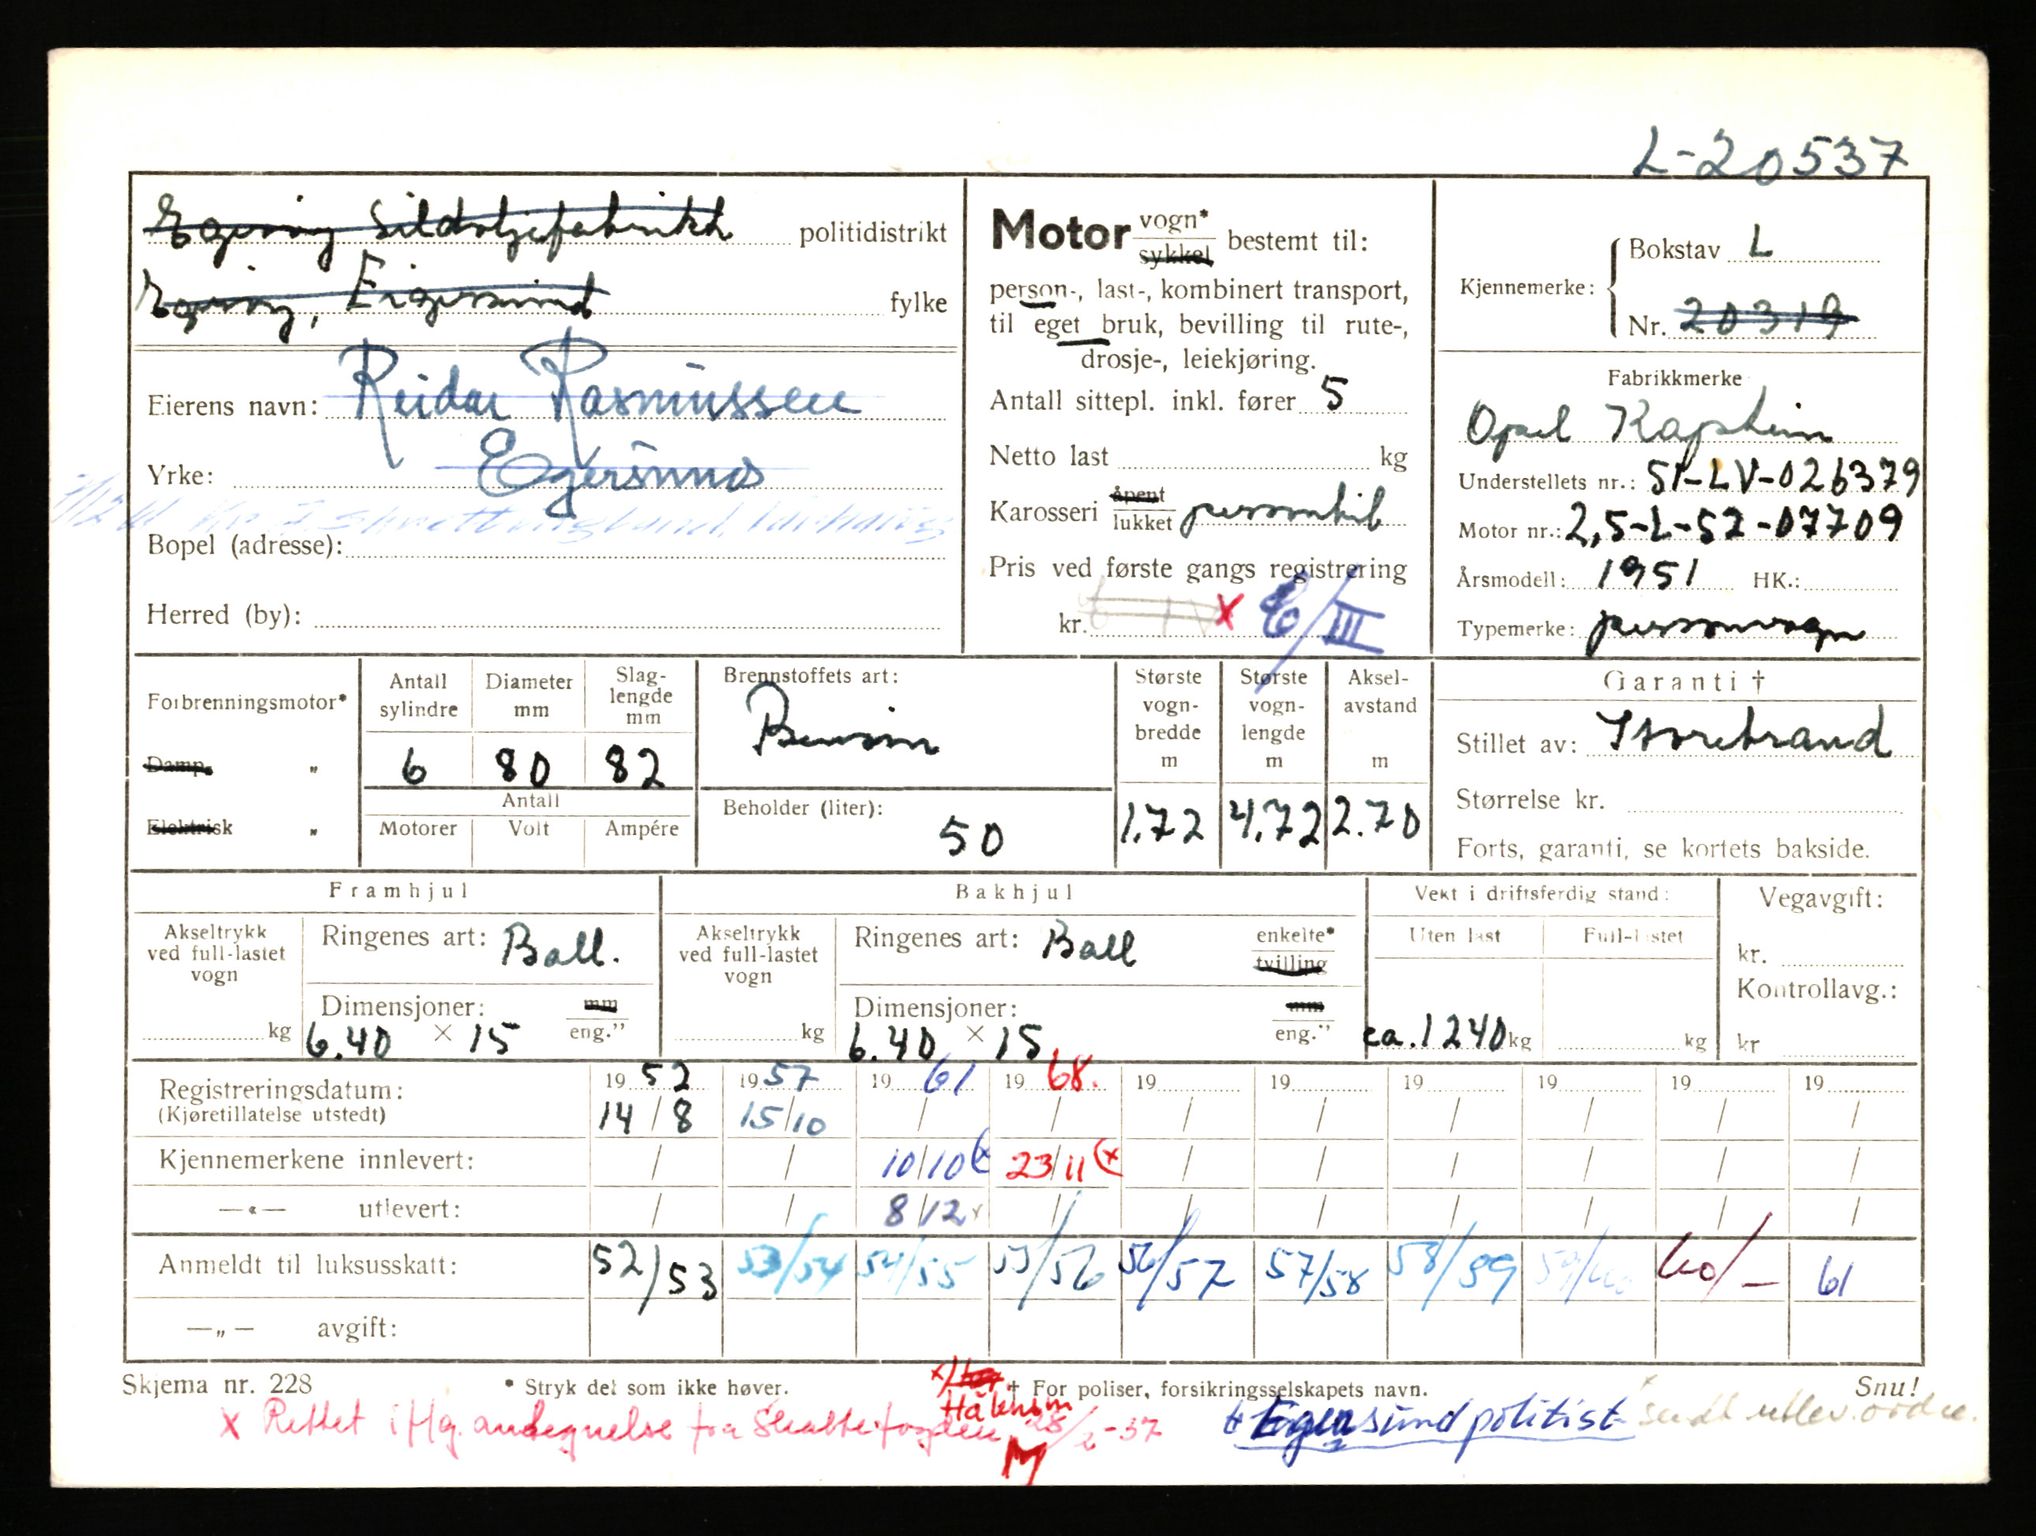 L-20537
Egerøy Sildoljefabrikk politidistrikt
Egerøy, Eigersund fylke
Eierens navn: Reidar Rasmussen
Yrke: Egersund
Bopel (adresse):
Herred (by):
Motor vogn* sykkel bestemt til:
person-, last-, kombinert transport,
til eget bruk, bevilling til rute-,
drosje-, leiekjøring.
Antall sittepl. inkl. fører 5
Netto last kg
Karosseri åpent lukket personbil
Pris ved første gangs registrering
kr. x C/III
Kjennemerke: Bokstav L
Nr. 20319
Fabrikkmerke
Opel Kaptein
Understellets nr.: 51-LV-026379
Motor nr.: 2,5-L-52-07709
Årsmodell: 1951 HK.:
Typemerke: personvogn
Forbrenningsmotor*
Damp- „
Elektrisk „
Antall sylindre 6
Diameter mm 80
Slaglengde mm 82
Antall
Motorer Volt Ampére
Brennstoffets art: Bensin
Beholder (liter): 50
Største vognbredde m 1.72
Største vognlengde m 4.72
Akselavstand m 2.70
Garanti †
Stillet av: Storebrand
Størrelse kr.
Forts, garanti, se kortets bakside.
Framhjul
Akseltrykk ved full-lastet vogn kg
Ringenes art: Ball.
Dimensjoner: mm
6.40 × 15 eng.”
Bakhjul
Akseltrykk ved full-lastet vogn kg
Ringenes art: Ball enkelte* tvilling
Dimensjoner: mm
6.40 × 15 eng.”
Vekt i driftsferdig stand:
Uten last Full-lastet
ca. 1240 kg kg
Vegavgift:
kr.
Kontrollavg.:
kr
Registreringsdatum: 19 52 19 57 19 61 19 68. 19 19 19 19 19 19
(Kjøretillatelse utstedt) 14/8 15/10 / / / / / / / /
Kjennemerkene innlevert: / / 10/10 (x 23/11 (x / / / / / /
—«— utlevert: / / 8/12 x / / / / / / /
Anmeldt til luksusskatt: 52/53 53/54 54/55 55/56 56/57 57/58 58/59 59/60 60/— 61
—„— avgift:
Skjema nr. 228 * Stryk det som ikke høver. † For poliser, forsikringsselskapets navn. Snu!
x Rettet i flg. antegnelse fra Skattefogden 28/2-57
Egersund politist. sendt utlev.ordre.